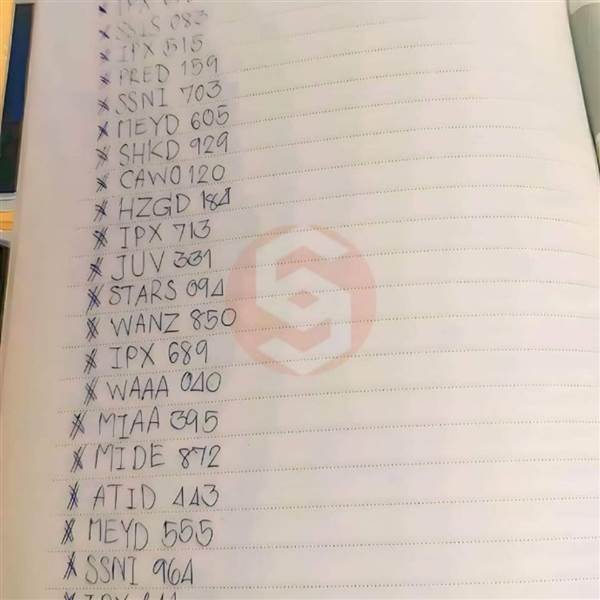 * SSIS 083
* IPX 515
* PRED 159
* SSNI 703
* MEYD 605
* SHKD 929
* CAWD 120
* HZGD 184
* IPX 713
* JUV 331
* STARS 094
* WANZ 850
* IPX 689
* WAAA 040
* MIAA 395
* MIDE 872
* ATID 443
* MEYD 555
* SSNI 964